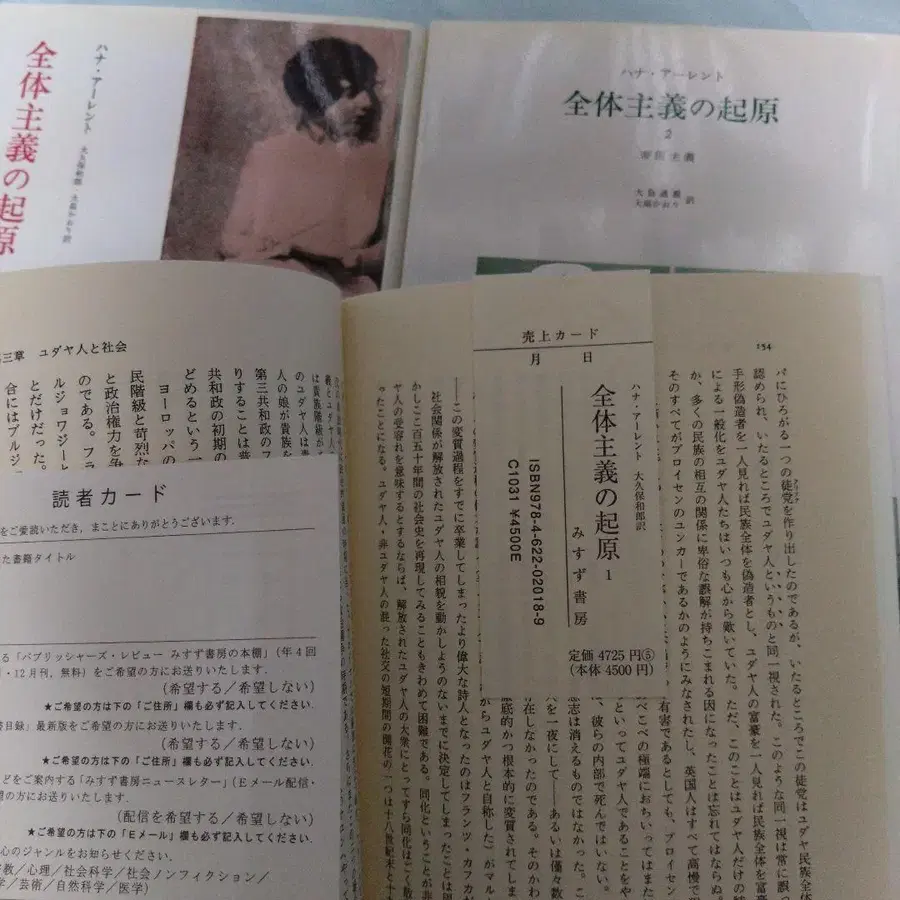 ハナ・アーレント
大久保和郎 大島かおり訳
全体主義の起原
ハナ・アーレント
全体主義の起原
2
帝国主義
大島通義
大島かおり
訳
三章 ユダヤ人と社会
のユダヤ人は
人の娘が貴族を
第三共和政の
りすることは
共和政の初期の
どめるという一
ヨーロッパの
民階級と苛烈な
と政治権力を争
のである。フラ
ルジョワジーと
とだけだった。
合にはブルジ
読者カード
をご愛読いただき,まことにありがとうございます.
た書籍タイトル
る「パブリッシャーズ・レビュー みすず書房の本棚」(年4回
・12月刊,無料)をご希望の方にお送りいたします.
(希望する/希望しない)
★ご希望の方は下の「ご住所」欄も必ず記入してください.
書目録」最新版をご希望の方にお送りいたします.
(希望する/希望しない)
★ご希望の方は下の「ご住所」欄も必ず記入してください.
どをご案内する「みすず書房ニュースレター」(Eメール配信・
望の方にお送りいたします.
(配信を希望する/希望しない)
★ご希望の方は下の「Eメール」欄も必ず記入してください.
心のジャンルをお知らせください.
教/心理/社会科学/社会ノンフィクション/
学/芸術/自然科学/医学)
売上カード
月 日
ハナ・アーレント 大久保和郎訳
全体主義の起原 1
みすず書房
ISBN978-4-622-02018-9
C1031 ¥4500E
定価 4725円⑤
(本体 4500円)
154
パにひろがる一つの徒党を作り出したのであるが、いたるところでこの徒党はユダヤ民族全体
認められ、いたるところでユダヤ人というものと同一視された。このような同一視は常に誤っ
手形偽造者を一人見れば民族全体を偽造者とし、ユダヤ人の富豪を一人見れば民族全体を富豪
による一般化をユダヤ人たちはいつも心から歎いていた。ただ、このことはユダヤ人だけの
か、多くの民族の相互の関係に卑俗な誤解が持ちこまれる因になったことは忘れてはならぬ。
そのすべてがプロイセンのユンカーであるかのようにみなされたし、英国人はすべて高慢で
有害であるとしても、プロイセン
べこべの極端におちいってはまた
といってユダヤ人であることをや
、彼らの内部で死んではいない。
志は消えるものではなかった。こ
人を一夜にして――あるいは僅々数
在しなかったのである。そのかわ
底的かつ根本的に変質されてしま
からユダヤ人と自称した)がマル
――この変質過程をすでに卒業してしまったより偉大な詩人となったのはフランツ・カフカが
社会関係が解放されたユダヤ人の相貌を動かしようのないまでに決定してしまったことは
かしここ百五十年間の社会史を再現してみることもきわめて困難である。同化ということが非
ヤ人の受容れを意味するとするならば、解放されたユダヤ人の大衆にとってすら同化はごく散
ったことになる。ユダヤ人・非ユダヤ人の混った社交の短期間の開花の一つは十八世紀末と十